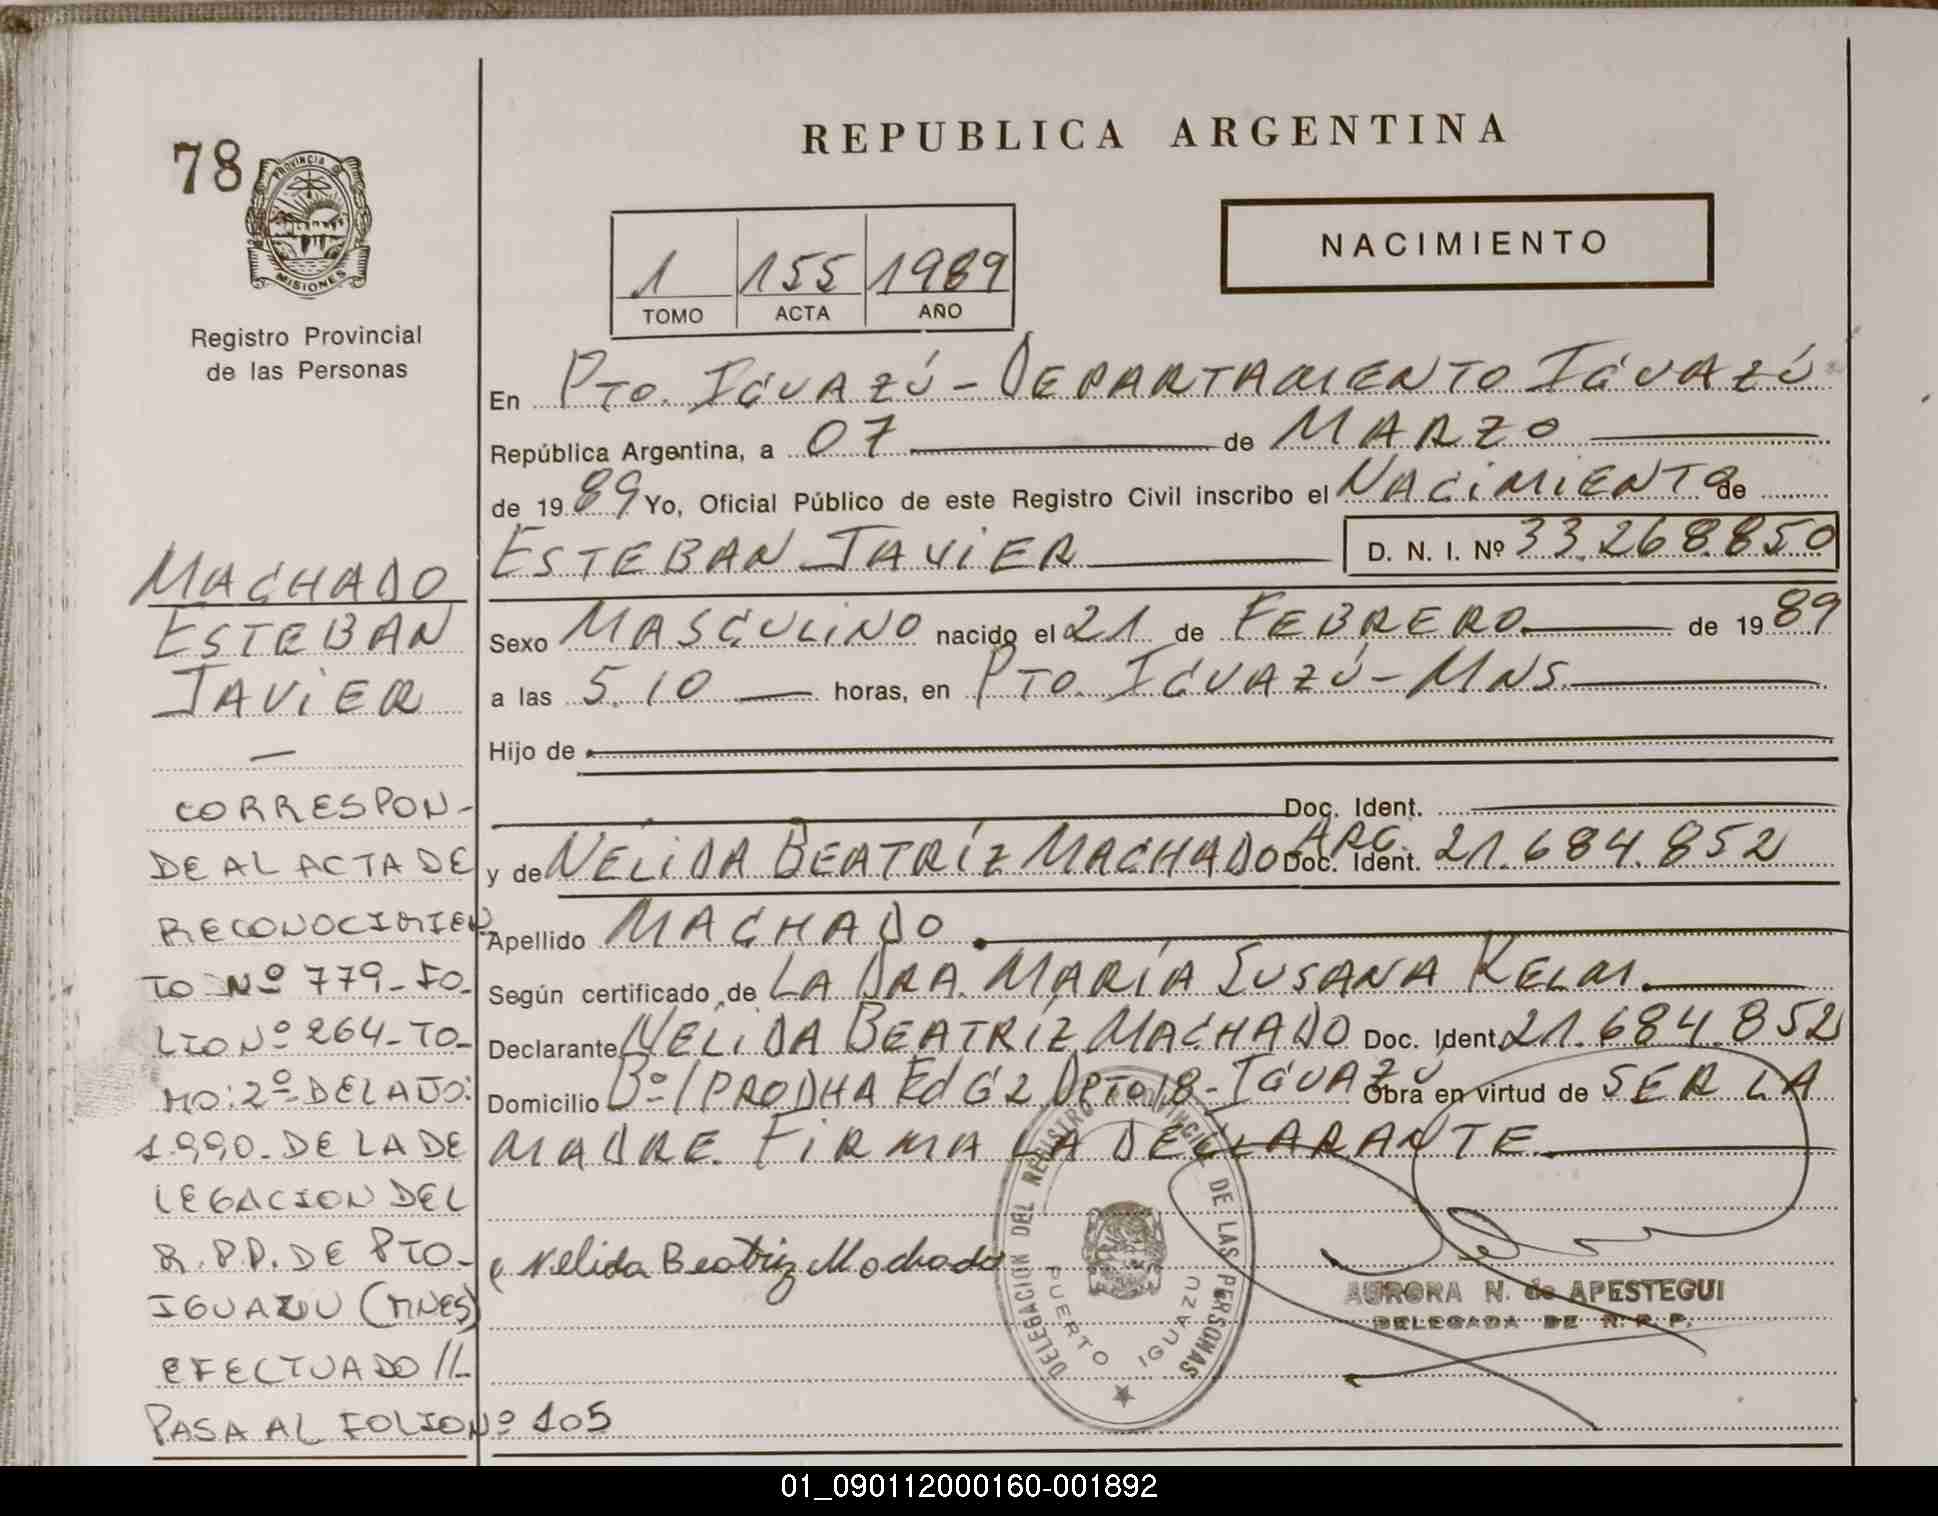 78
PROVINCIA DE
MISIONES
Registro Provincial
de las Personas
REPUBLICA ARGENTINA
NACIMIENTO
1 155 1989
TOMO ACTA AÑO
En PTO. IGUAZÚ - DEPARTAMENTO IGUAZÚ
República Argentina, a 07 de MARZO
de 1989 Yo, Oficial Público de este Registro Civil inscribo el NACIMIENTO de
ESTEBAN JAVIER D. N. I. Nº 33.268.850
Sexo MASCULINO nacido el 21 de FEBRERO de 1989
a las 5.10 horas, en PTO. IGUAZÚ - MNS.
Hijo de
Doc. Ident.
y de NÉLIDA BEATRÍZ MACHADO Doc. Ident. ARG. 21.684.852
Apellido MACHADO
Según certificado de LA DRA. MARÍA SUSANA KELM.
Declarante NÉLIDA BEATRÍZ MACHADO Doc. Ident. 21.684.852
Domicilio Bº IPRODHA Ed G2 DPTO 18 - IGUAZÚ Obra en virtud de SER LA
MADRE. FIRMA LA DECLARANTE
Nelida Beatriz Machado
DELEGACION DEL REGISTRO PROVINCIAL DE LAS PERSONAS
PUERTO IGUAZU
AURORA N. de APESTEGUI
DELEGADA DE R. P. P.
MACHADO
ESTEBAN
JAVIER
CORRESPON-
DE AL ACTA DE
RECONOCIMIEN
TO Nº 779-FO-
LIO Nº 264-TO-
MO: 2º DEL AÑO:
1.990. DE LA DE
LEGACION DEL
R.P.P. DE PTO-
IGUAZU (MNES)
EFECTUADO //-
PASA AL FOLIO Nº 105
01_090112000160-001892